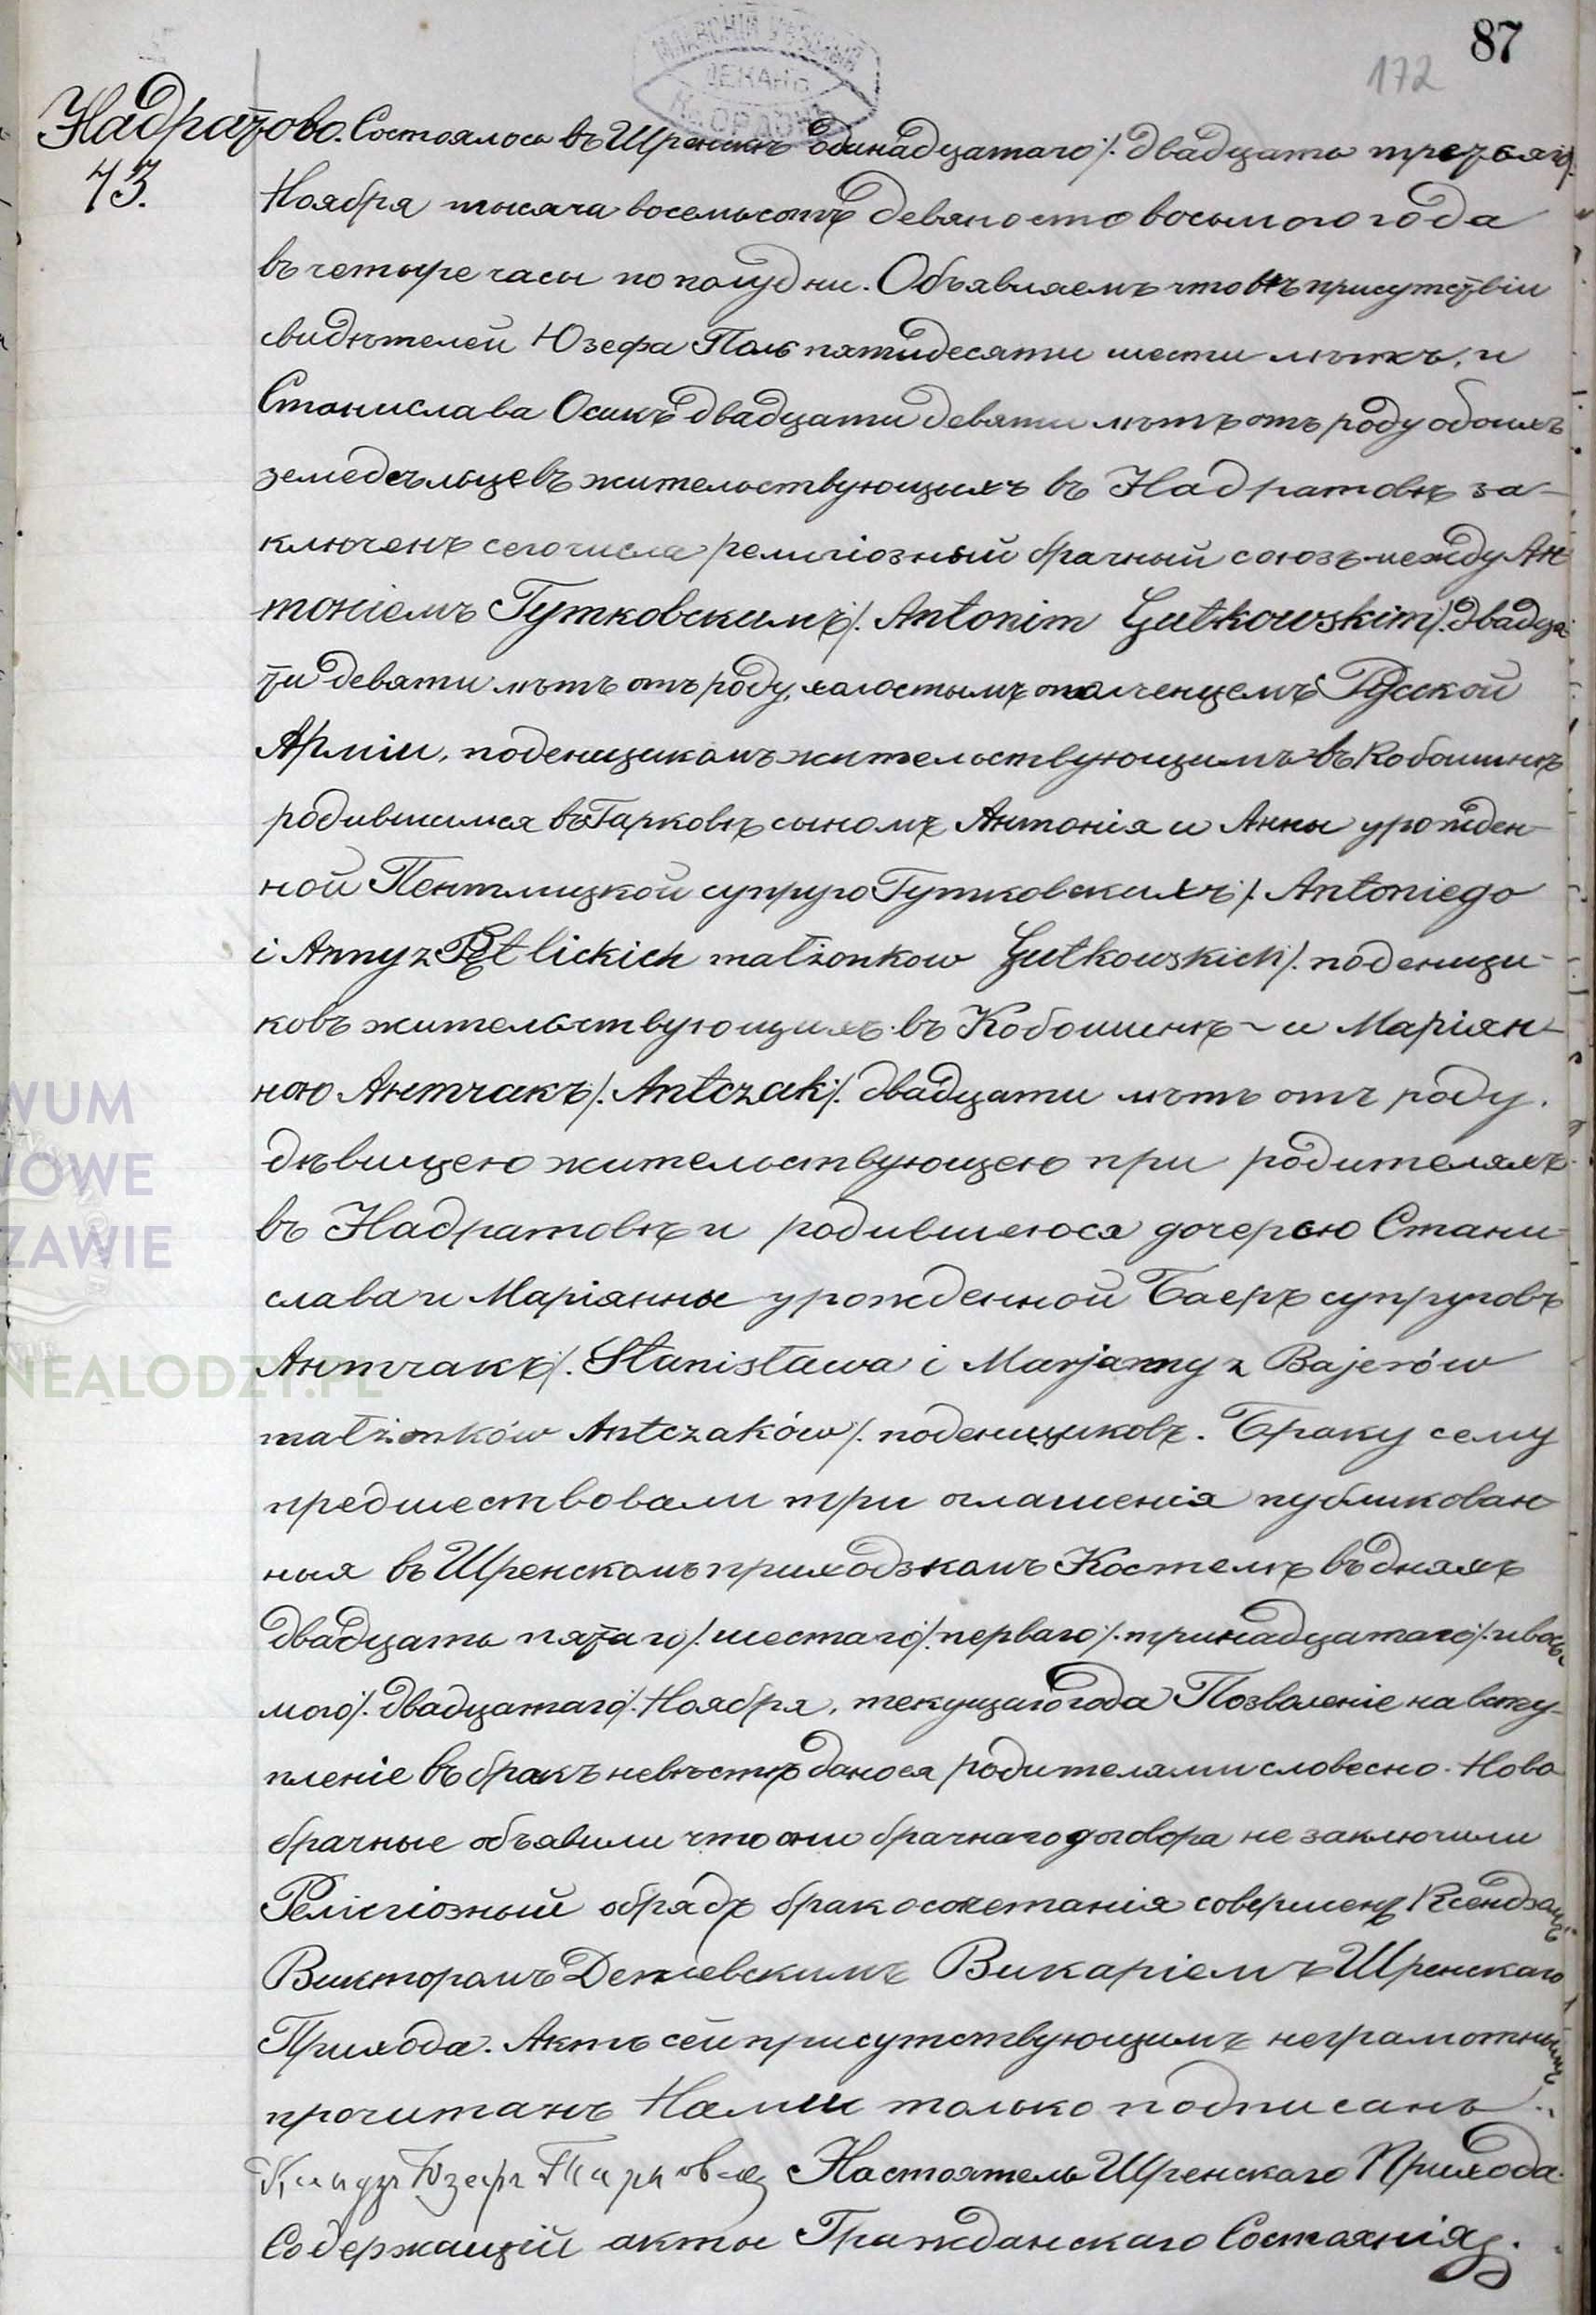 87
172
МЛАВСКІЙ УѢЗДНЫЙ
ДЕКАНЪ
Надратово. Состоялось въ Шренскѣ одинадцатаго /. двадцать третьяго/.
73.
Ноября тысяча восемьсотъ девяносто восьмого года
въ четыре часы по полудни. Объявляемъ что въ присутствіи
свидѣтелей Юзефа Поль пятидесяти шести лѣтъ, и
Станислава Осикъ двадцати девяти лѣтъ отъ роду обоихъ
земледѣльцевъ жительствующихъ въ Надратовѣ за-
ключенъ сего числа религіозный брачный союзъ между Ан
тоніемъ Гутковскимъ /. Antonim Gutkowskim /. двадца
ти девяти лѣтъ отъ роду, холостымъ ополченцемъ Русской
Арміи, поденщикомъ жительствующимъ въ Кобошинѣ
родившимся въ Гарковѣ сыномъ Антонія и Анны урожден-
ной Пентлицкой супруго Гутковскихъ /. Antoniego
i Anny z Pętlickich małżonkow Gutkowskich /. поденщи-
ковъ жительствующихъ въ Кобошинѣ ~ и Маріан-
ною Антчакъ /. Antczak /. двадцати лѣтъ отъ роду.
дѣвицею жительствующею при родителяхъ
въ Надратовѣ и родившеюся дочерью Стани-
слава и Маріянны урожденной Баеръ супруговъ
Антчакъ /. Stanisława i Marjanny z Bajerów
małżonków Antczaków /. поденщиковъ. Браку сему
предшествовали три оглашенія публикован-
ныя въ Шренскомъ приходзкомъ Костелѣ въ дняхъ
двадцать пятаго /. шестаго /. перваго /. тринадцатаго /. и вось
мого /. двадцатаго /. Ноября, текущаго года Позволеніе на всту-
пленіе въ бракъ невѣстѣ дано ея родителями словесно. Ново
брачные объявили что они брачнаго договора не заключили
Религіозный обрядъ бракосочетанія совершенъ Ксендзомъ
Викторомъ Викаріемъ Шренскаго
Прихода. Актъ сей присутствующимъ неграмотнымъ
прочитанъ Нами только подписанъ.
Ксендзъ Юзефъ Настоятель Шренскаго Прихода
Содержащій акты Гражданскаго Состоянія.
WUM
IOWE
ZAWIE
NEALODZY.PL